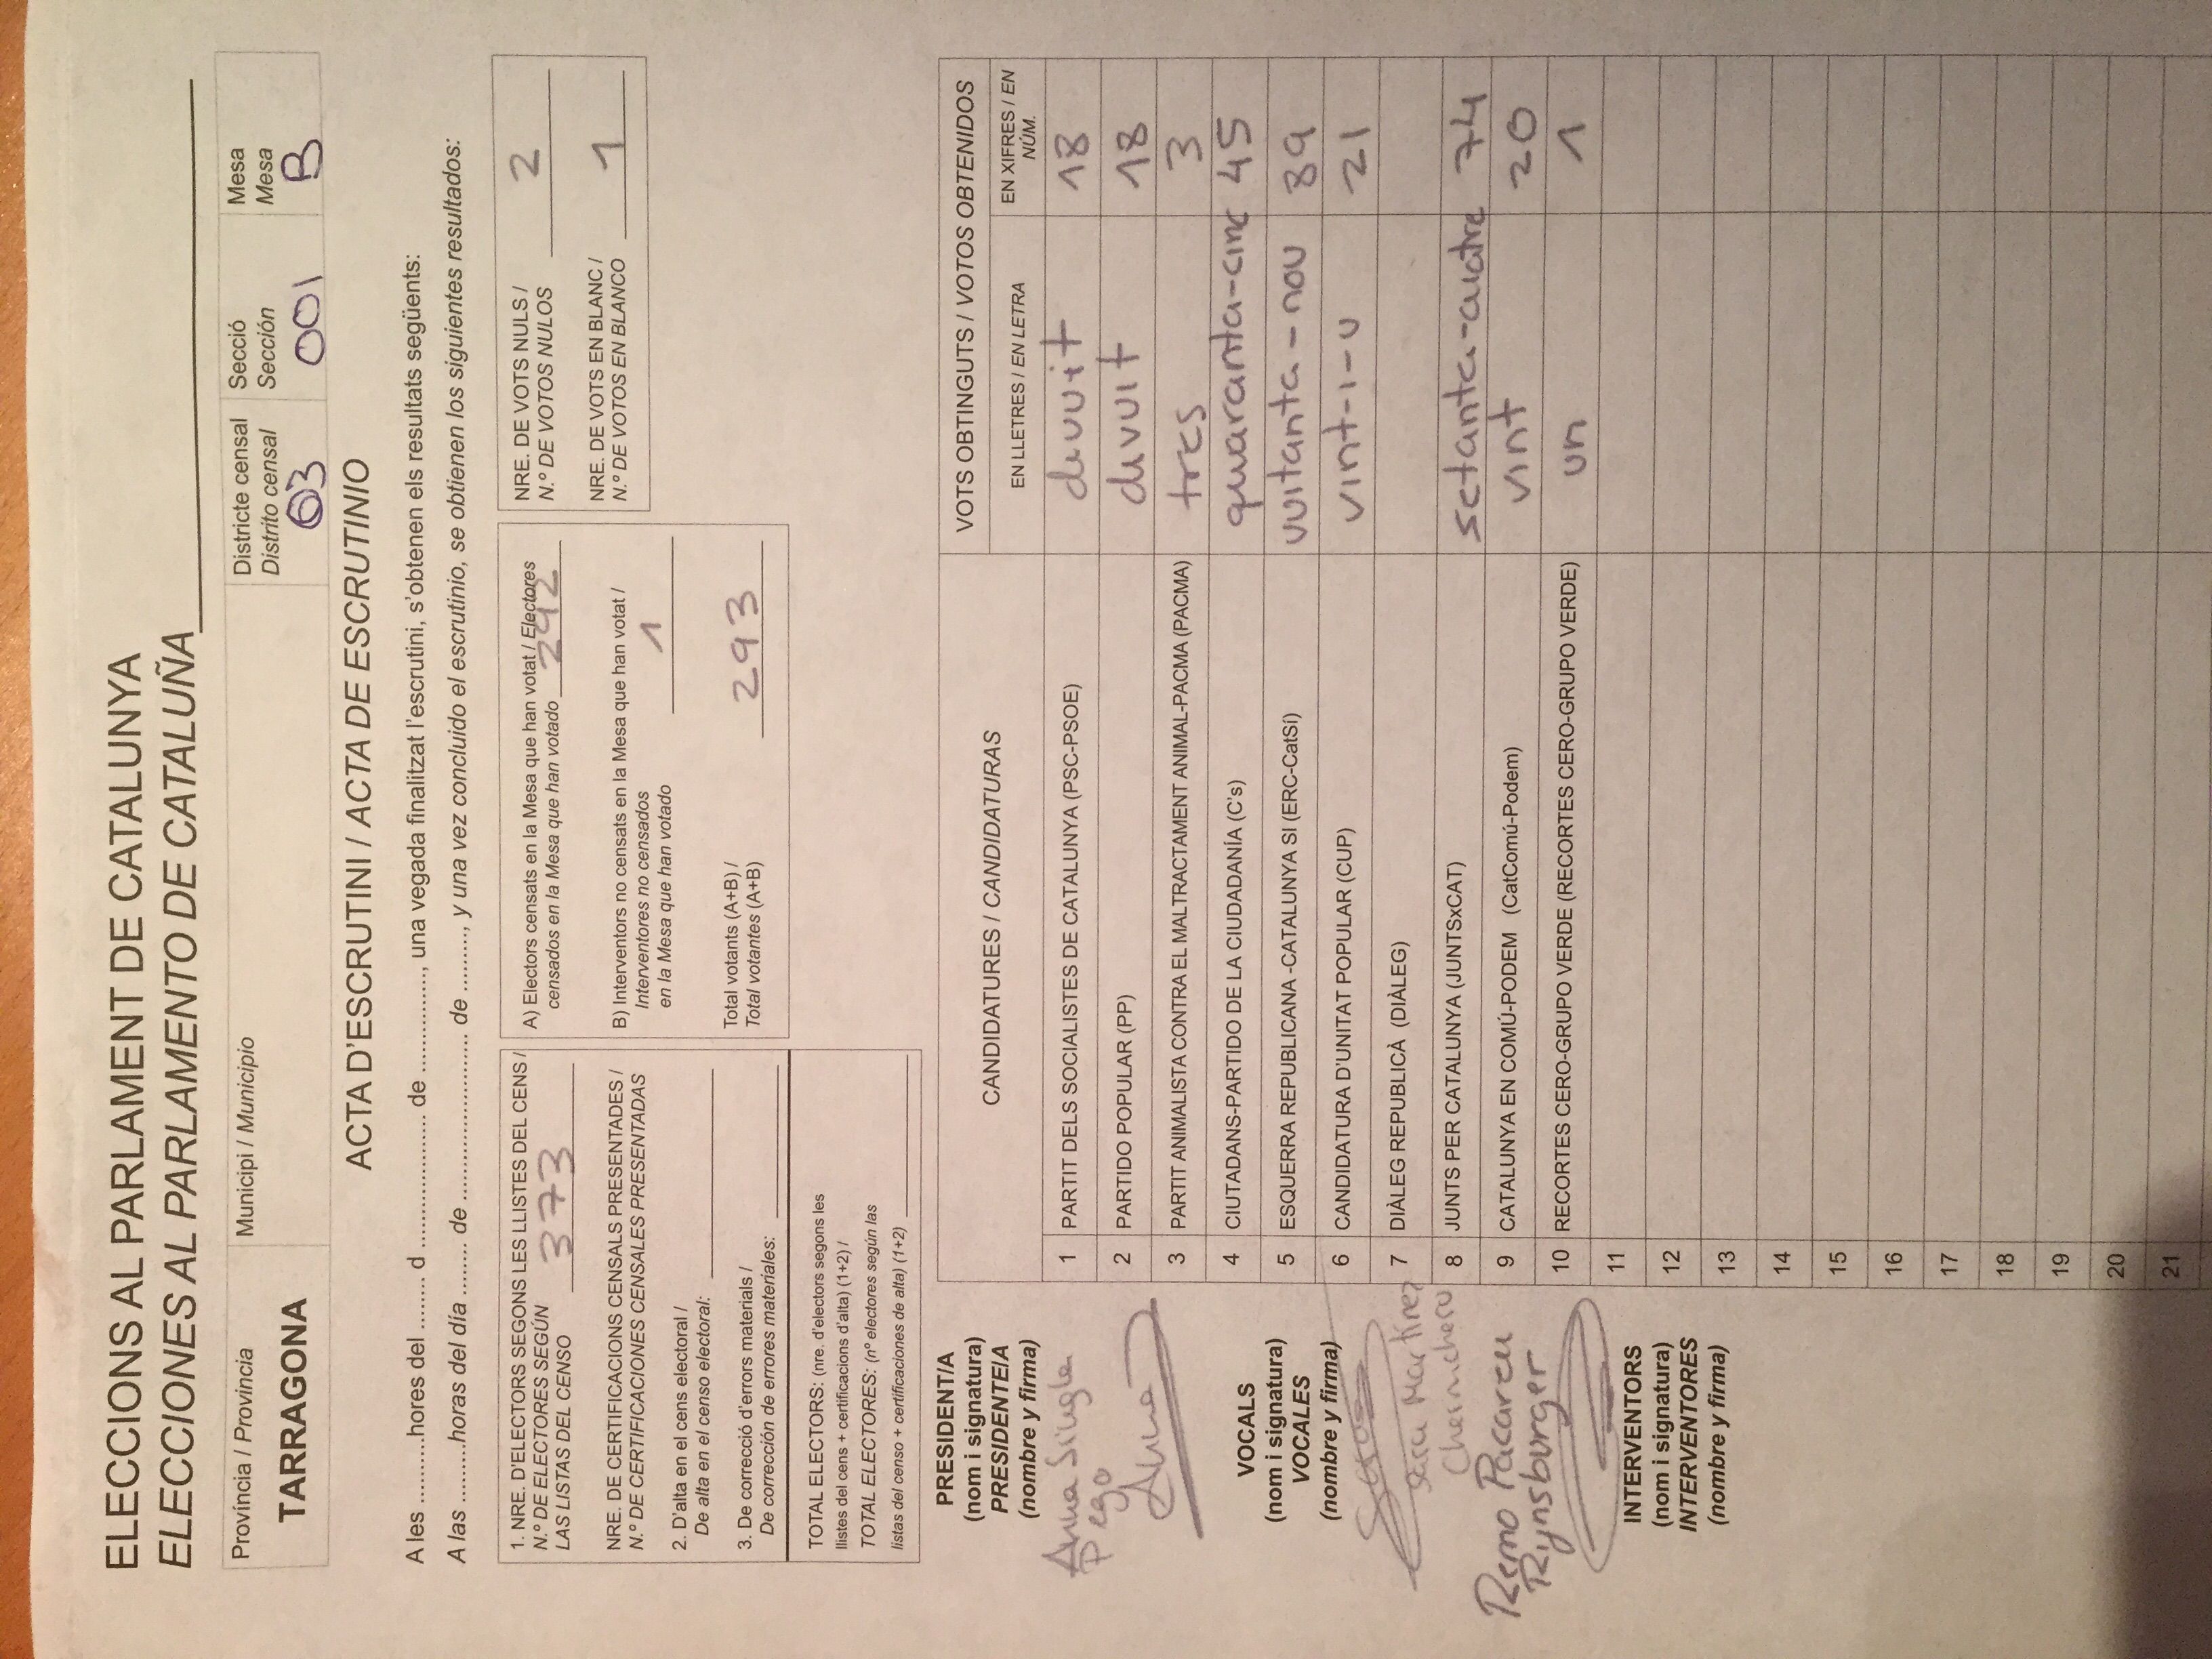 ELECCIONS AL PARLAMENT DE CATALUNYA
ELECCIONES AL PARLAMENTO DE CATALUÑA
Província / Provincia
TARRAGONA
Municipi / Municipio
Districte censal
Distrito censal
03
Secció
Sección
001
Mesa
Mesa
B
ACTA D'ESCRUTINI / ACTA DE ESCRUTINIO
A les ..........hores del ........ d .................... de ..............., una vegada finalitzat l'escrutini, s'obtenen els resultats següents:
A las .........horas del día ........ de ......................... de ........., y una vez concluido el escrutinio, se obtienen los siguientes resultados:
1. NRE. D'ELECTORS SEGONS LES LLISTES DEL CENS /
N.º DE ELECTORES SEGÚN
LAS LISTAS DEL CENSO 373
NRE. DE CERTIFICACIONS CENSALS PRESENTADES /
N.º DE CERTIFICACIONES CENSALES PRESENTADAS
2. D'alta en el cens electoral /
De alta en el censo electoral:
3. De correcció d'errors materials /
De corrección de errores materiales:
TOTAL ELECTORS: (nre. d'electors segons les
llistes del cens + certificacions d'alta) (1+2) /
TOTAL ELECTORES: (nº electores según las
listas del censo + certificaciones de alta) (1+2)
A) Electors censats en la Mesa que han votat / Electores
censados en la Mesa que han votado 292
B) Interventors no censats en la Mesa que han votat /
Interventores no censados
en la Mesa que han votado 1
Total votants (A+B) /
Total votantes (A+B) 293
NRE. DE VOTS NULS /
N.º DE VOTOS NULOS 2
NRE. DE VOTS EN BLANC /
N.º DE VOTOS EN BLANCO 1
PRESIDENT/A
(nom i signatura)
PRESIDENTE/A
(nombre y firma)
Anna Singla
Pego
Anna
VOCALS
(nom i signatura)
VOCALES
(nombre y firma)
Sara Martínez
Remo Pacareu
Rynsburger
INTERVENTORS
(nom i signatura)
INTERVENTORES
(nombre y firma)
CANDIDATURES / CANDIDATURAS
VOTS OBTINGUTS / VOTOS OBTENIDOS
EN LLETRES / EN LETRA
EN XIFRES / EN
NÚM.
1 PARTIT DELS SOCIALISTES DE CATALUNYA (PSC-PSOE) divuit 18
2 PARTIDO POPULAR (PP) divuit 18
3 PARTIT ANIMALISTA CONTRA EL MALTRACTAMENT ANIMAL-PACMA (PACMA) tres 3
4 CIUTADANS-PARTIDO DE LA CIUDADANÍA (C's) quaranta-cinc 45
5 ESQUERRA REPUBLICANA -CATALUNYA SI (ERC-CatSí) vuitanta-nou 89
6 CANDIDATURA D'UNITAT POPULAR (CUP) vint-i-u 21
7 DIÀLEG REPUBLICÀ (DIÀLEG)
8 JUNTS PER CATALUNYA (JUNTSxCAT) setanta-cuatre 74
9 CATALUNYA EN COMÚ-PODEM (CatComú-Podem) vint 20
10 RECORTES CERO-GRUPO VERDE (RECORTES CERO-GRUPO VERDE) un 1
11
12
13
14
15
16
17
18
19
20
21